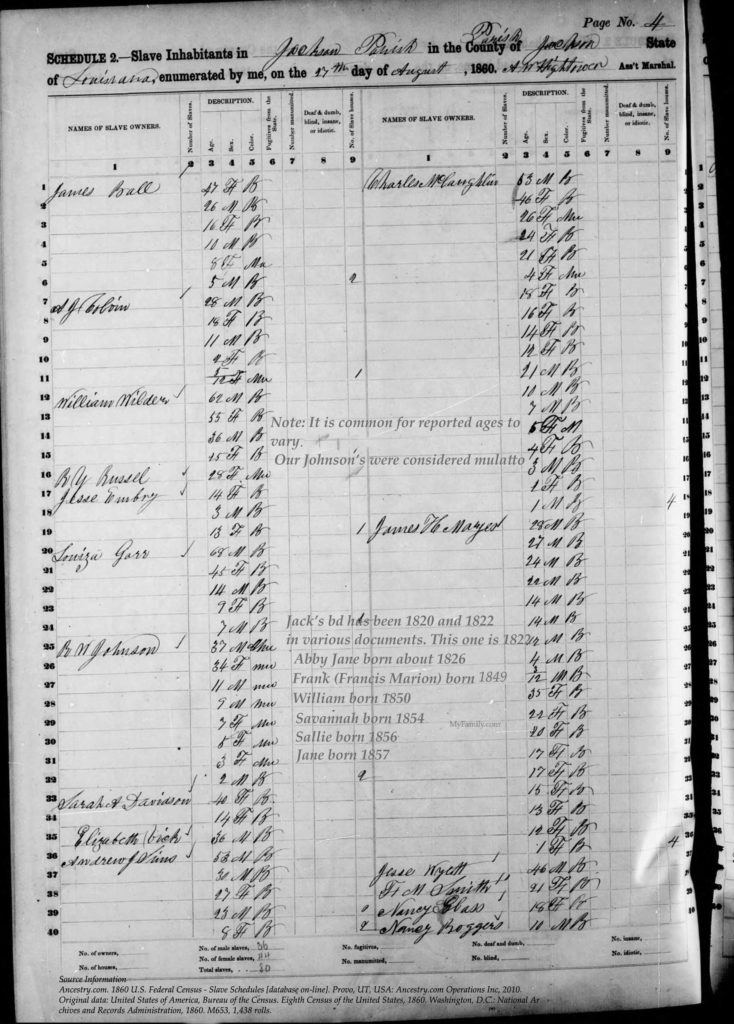 Page No. 4
SCHEDULE 2.—Slave Inhabitants in Jackson Parish in the County of Parish Jackson State
of Louisiana, enumerated by me, on the 27th day of August, 1860. Ass't Marshal.
NAMES OF SLAVE OWNERS. Number of Slaves. DESCRIPTION. Age. Sex. Color. Fugitives from the State. Number manumitted. Deaf & dumb, blind, insane, or idiotic. No. of slave houses. NAMES OF SLAVE OWNERS. Number of Slaves. DESCRIPTION. Age. Sex. Color. Fugitives from the State. Number manumitted. Deaf & dumb, blind, insane, or idiotic. No. of slave houses.
1 2 3 4 5 6 7 8 9 1 2 3 4 5 6 7 8 9
1 James Ball 47 F B Charles McLaughlin 53 M B
2 26 M B 46 F B
3 16 F B 26 F Mu
4 10 M B 24 F B
5 8 F Mu 21 F B
6 5 M B 2 4 F Mu
7 A J Colvin 28 M B 18 F B
8 18 F B 16 F B
9 11 M B 14 F B
10 2 F B 12 F B
11 F Mu 1 21 M B
12 William Wilder 62 M B 10 M B
13 55 F B 7 M B
Note: It is common for reported ages to
vary.
14 36 M B 5 F M
15 15 F B 4 F B
Our Johnson's were considered mulatto
16 R Y Russel 28 F Mu 3 M B
17 Jesse Embry 14 F B F B
18 3 M B 1 M B 4
19 13 F B 1 James H Mayes 28 M B
20 Louiza Garr 68 M B 27 M B
21 45 F B 24 M B
22 14 M B 22 M B
23 9 F B 14 M B
24 7 M B 14 M B
Jack's bd has been 1820 and 1822
in various documents. This one is 1822
25 R W Johnson 37 M Mu M B
26 34 F mu 4 M B
Abby Jane born about 1826
27 11 M mu M B
Frank (Francis Marion) born 1849
28 9 M mu 35 F B
William born 1850
29 7 F Mu 22 F B
Savannah born 1854
MyFamily.com
30 5 F Mu 20 F B
Sallie born 1856
31 3 F Mu 17 F B
Jane born 1857
32 2 M B 2 17 F B
33 Sarah A Davidson 40 F B 15 F B
34 14 F B 13 F B
35 Elizabeth 36 M B 12 F B
36 Andrew J Sims 58 M B 1 F B 4
37 30 M B Jesse Wyett 46 M B
38 27 F B F M Smith 21 F B
39 23 M B Nancy Glass 18 F B
40 8 F B 2 Nancy Roggers 10 M B
No. of owners, No. of male slaves, 36 No. fugitives, No. deaf and dumb, No. insane,
No. of houses, No. of female slaves, 44 No. manumitted, No. blind, No. idiotic,
Total slaves, 80
Source Information
Ancestry.com. 1860 U.S. Federal Census - Slave Schedules [database on-line]. Provo, UT, USA: Ancestry.com Operations Inc, 2010.
Original data: United States of America, Bureau of the Census. Eighth Census of the United States, 1860. Washington, D.C.: National Ar
chives and Records Administration, 1860. M653, 1,438 rolls.